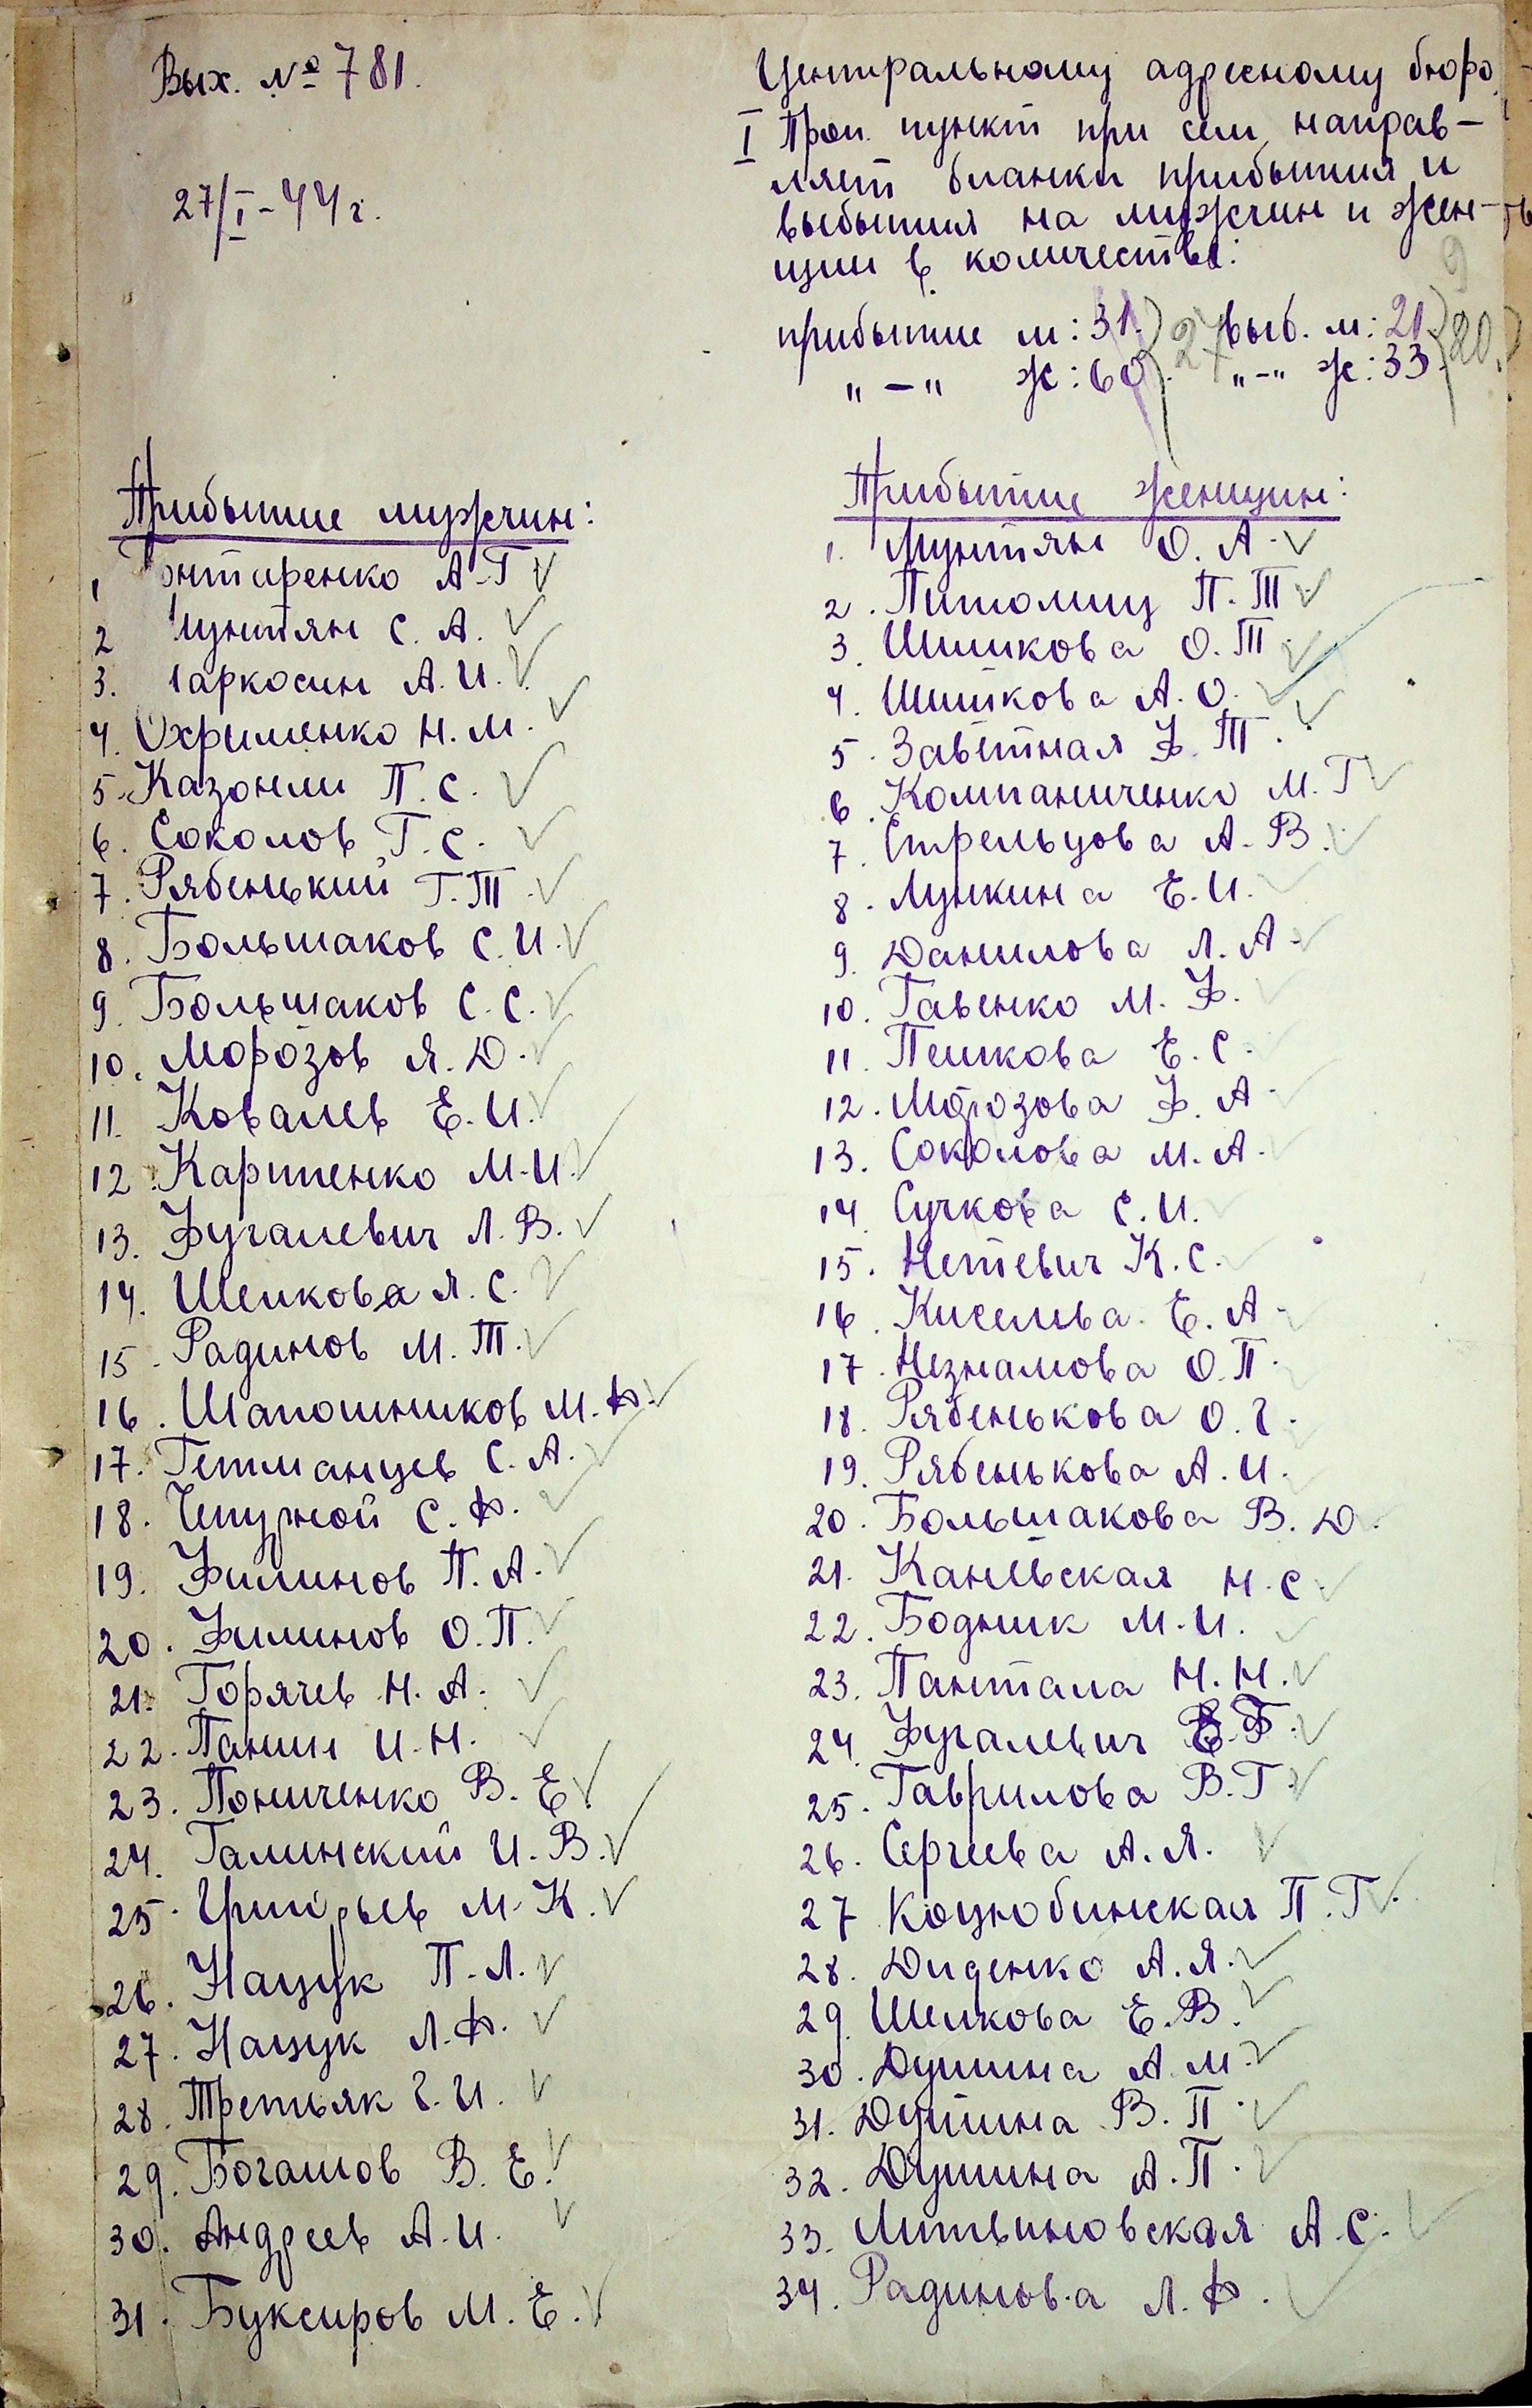 Вых. № 781.
27/I-44 г.
Центральному адресному бюро
I Проп. пункт при сем направ-
ляет бланки прибытия и
выбытия на мужчин и жен-
щин в количестве:
прибытие м: 31. 27 выб. м: 21. 20.
"-" ж: 60. "-" ж: 33.
9
Прибытие мужчин:
1 онтаренко А.Г
2 унтян С. А.
3. аркосин А. И.
4. Охрименко Н. М.
5. Казонли П. С.
6. Соколов Г. С.
7. Рябенький Г. Т.
8. Большаков С. И.
9. Большаков С. С.
10. Морозов Я. Д.
11. Ковалев Е. И.
12. Карпенко М. И.
13. Фугалевич Л. В.
14. Шейкова Я. С.
15. Радинов М. Т.
16. Шапошников М. Ф.
17. Гетманцев С. А.
18. Чепурной С. Ф.
19. Филинов П. А.
20. Филинов О. П.
21. Горячев Н. А.
22. Панин И. Н.
23. Пониченко В. Е.
24. Галинский И. В.
25. Григорьев М. К.
26. Нащук П. Л.
27. Нащук Л. Ф.
28. Третьяк Г. И.
29. Богашов В. Е.
30. Андреев А. И.
31. Буксиров М. Е.
Прибытие женщин:
1. Мунтян О. А.
2. Питомиц П. Т.
3. Шишкова О. Т.
4. Шишкова А. О.
5. Заветная Ф. Т.
6. Компаниченко М. Г
7. Стрельцова А. В.
8. Лункина Е. И.
9. Данилова Л. А.
10. Гавенко М. Ф.
11. Пешкова Е. С.
12. Морозова Ф. А.
13. Соколова М. А.
14. Сучкова С. И.
15. Нетевич К. С.
16. Киселева Е. А.
17. Незнамова О. П.
18. Рябенькова О. Г.
19. Рябенькова А. И.
20. Большакова В. Д.
21. Каневская Н. С.
22. Бодник М. И.
23. Пантала Н. Н.
24. Фугалевич Е. Г.
25. Гаврилова В. Г.
26. Сергеева А. Я.
27 Коцюбинская П. Г.
28. Диденко А. Я.
29. Шейкова Е. В.
30. Душина А. М.
31. Душина В. П.
32. Душина А. П.
33. Литвиновская А. С.
34. Радинова Л. Ф.